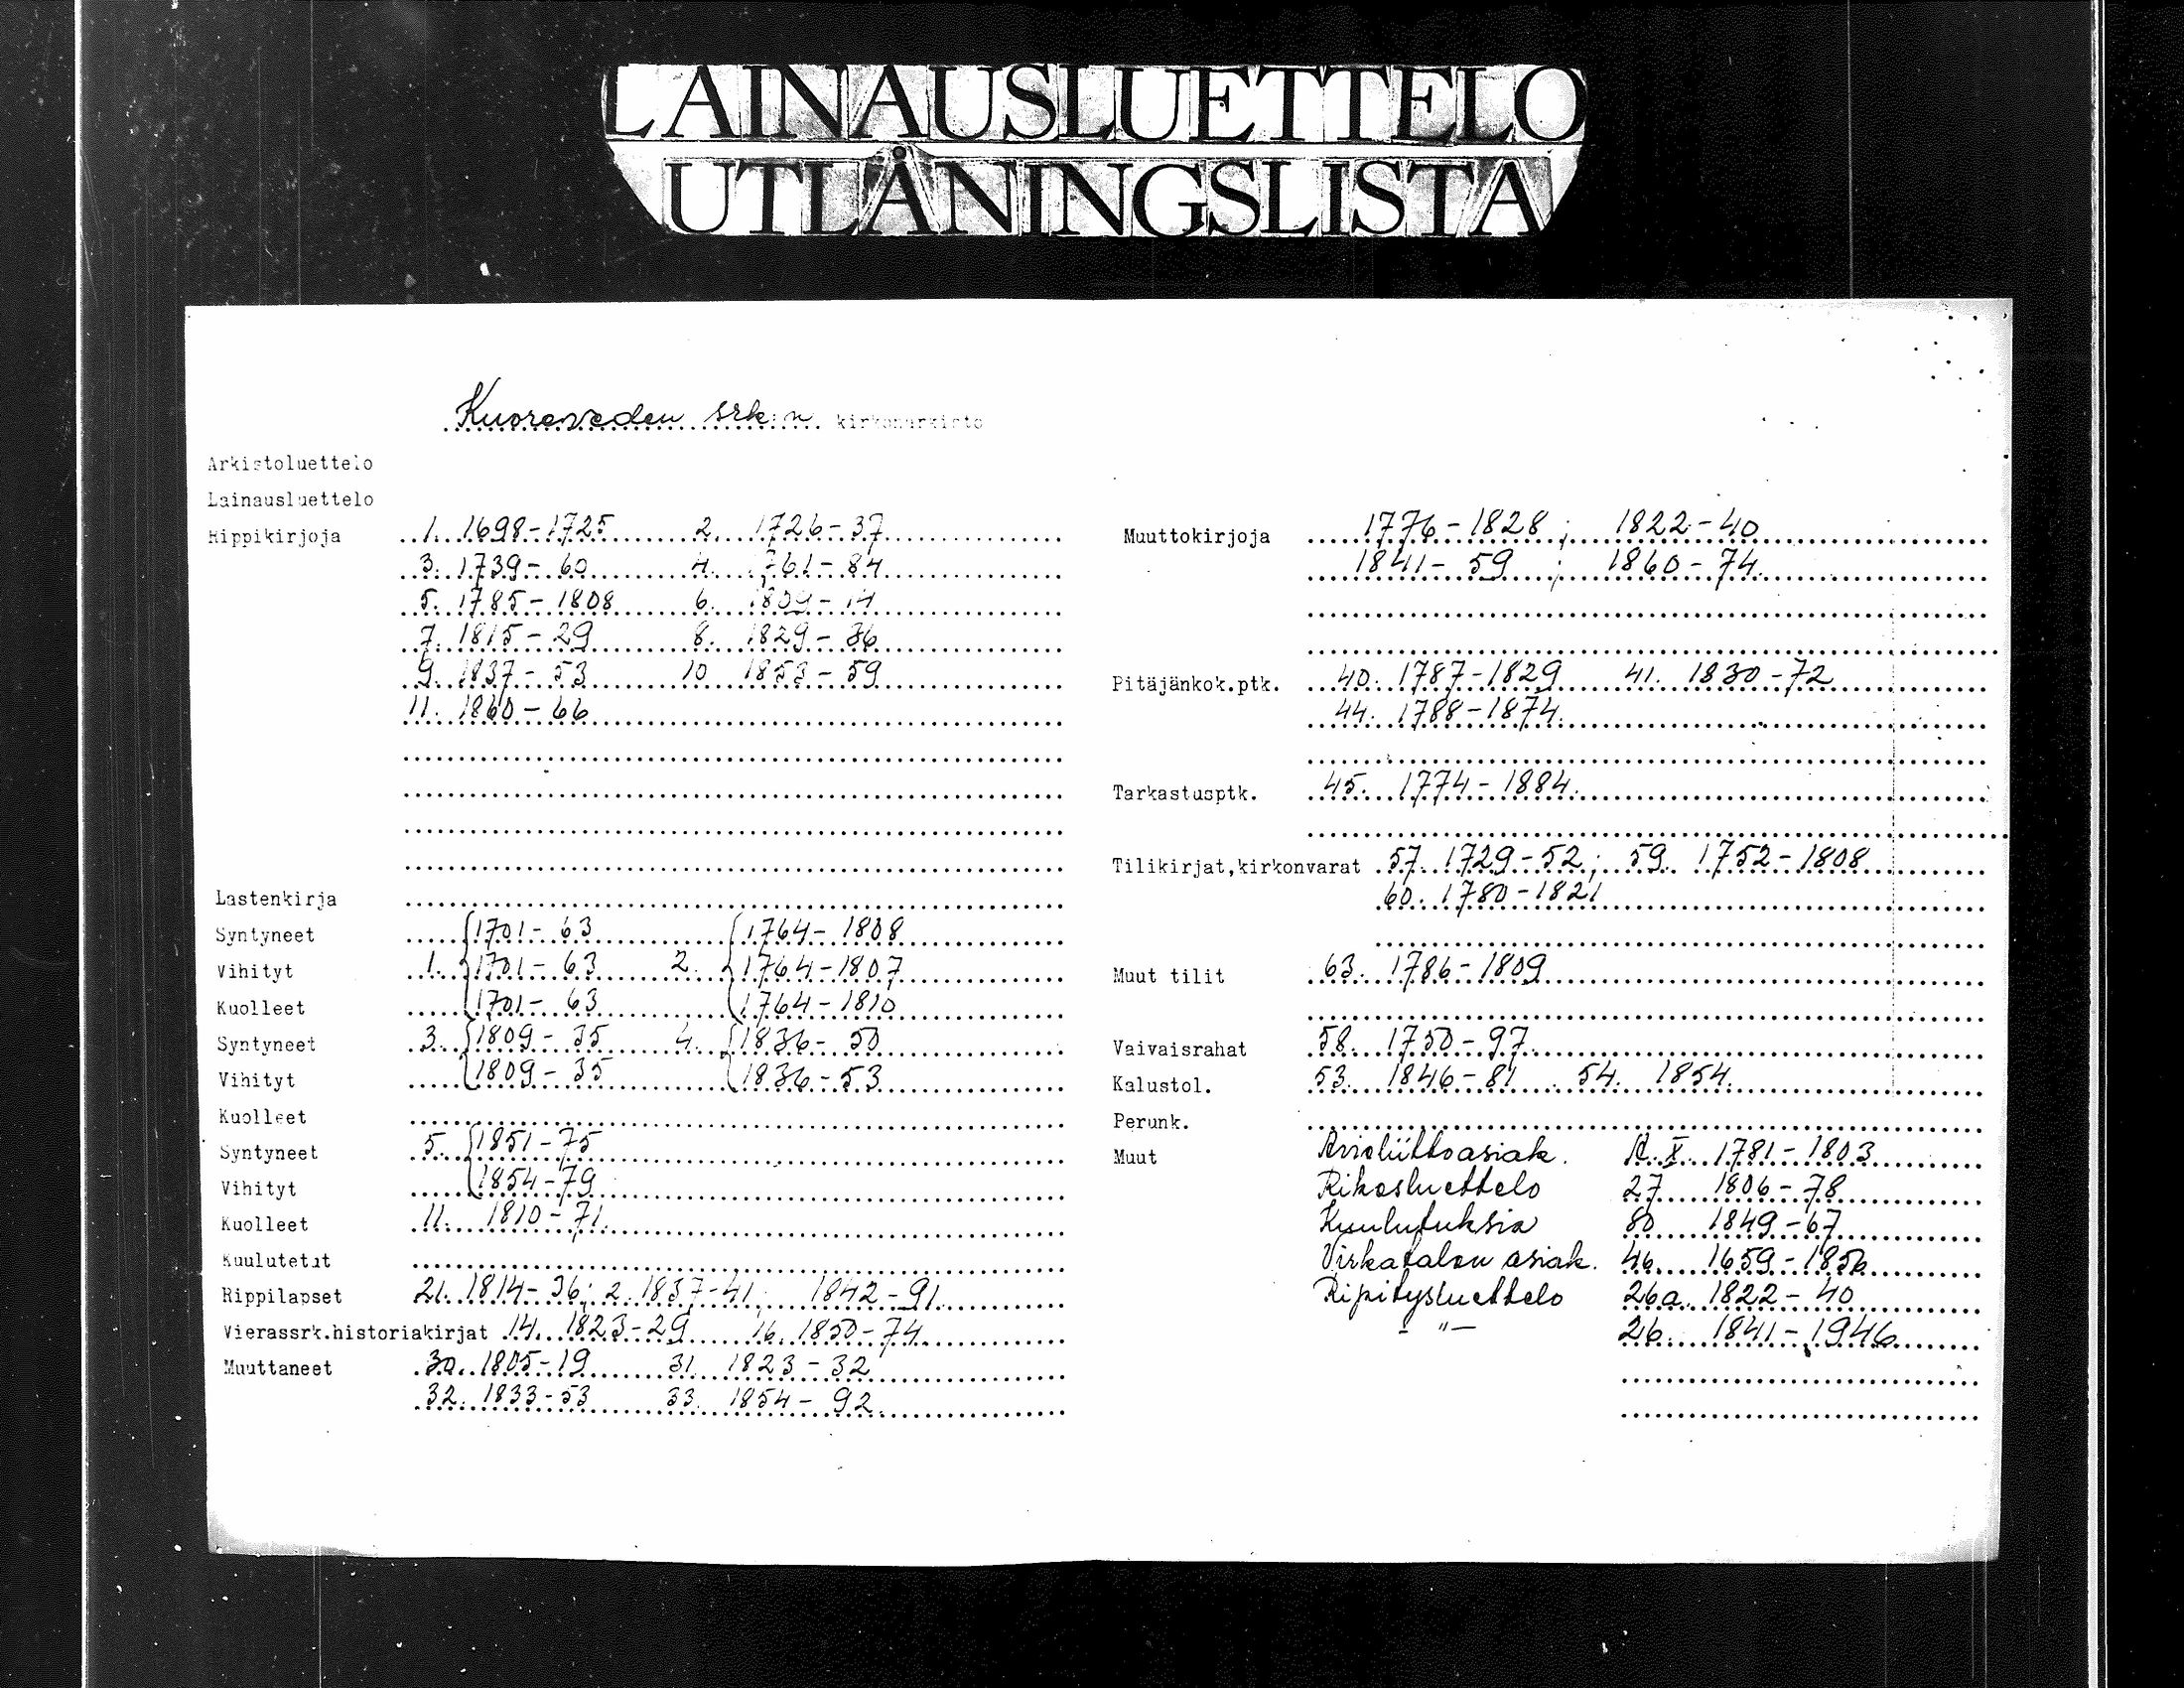 LAINAUSLUETTELO
UTLÅNINGSLISTA
Kuoreveden srk:n kirkonarkisto
Arkistoluettelo
Lainausluettelo
Rippikirjoja 1. 1698-1725 2. 1726-37
3. 1739-60 4. 1761-84
5. 1785-1808 6. 1809-14
7. 1815-29 8. 1829-36
9. 1837-53 10 1853-59
11. 1860-66
Lastenkirja
Syntyneet 1701-63 1764-1808
Vihityt 1. 1701-63 2. 1764-1807
Kuolleet 1701-63 1764-1810
Syntyneet 3. 1809-35 4. 1836-50
Vihityt 1809-35 1836-53
Kuolleet
Syntyneet 5. 1851-75
Vihityt 1854-79
Kuolleet 11. 1810-71.
Kuulutetut
Rippilapset 21. 1814-36; 2. 1837-41; 1842-91.
Vierassrk.historiakirjat 14. 1823-29 16. 1850-74
Muuttaneet 30. 1805-19 31. 1823-32
32. 1833-53 33. 1854-92.
Muuttokirjoja 1776-1828; 1822-40
1841-59; 1860-74.
Pitäjänkok.ptk. 40. 1787-1829 41. 1830-72
44. 1788-1874.
Tarkastusptk. 45. 1774-1884.
Tilikirjat,kirkonvarat 57. 1729-52; 59. 1752-1808
60. 1780-1821
Muut tilit 63. 1786-1809
Vaivaisrahat 58. 1750-97.
Kalustol. 53. 1846-81 54. 1854.
Perunk.
Muut Avioliittoasiak. A.X. 1781-1803
Rikosluettelo 27 1806-78
Kuulutuksia 80 1849-67
Virkatalon asiak. 46. 1659-1856
Ripitysluettelo 26a. 1822-40
-"- 26. 1841-1946